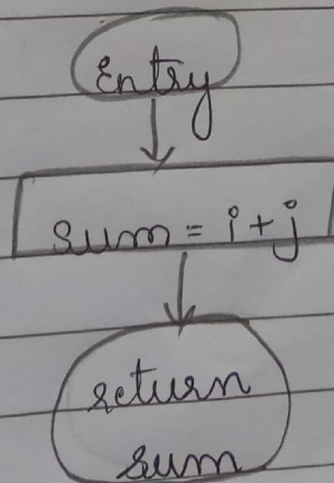 Entry
sum = i + j
return
sum